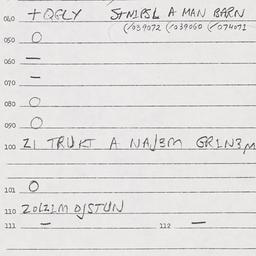 060 + QGLY S+NIPSL A MAN BARN
(/039072 (/039060 (/074071
050 O
060 —
070 —
080 O
090 O
100 Z1 TRUKT A NAJ3M GRIN3M
101 O
110 ZO1Z1M DJSTUN
111 — 112 —